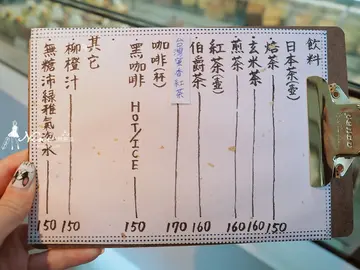 飲料
日本茶(壺)
焙茶 150
玄米茶 160
煎茶 160
紅茶(壺)
伯爵茶 160
台灣蜜香紅茶 170
咖啡(杯)
黑咖啡 HOT/ICE 150
其它
柳橙汁 150
無糖沛綠雅氣泡水 150